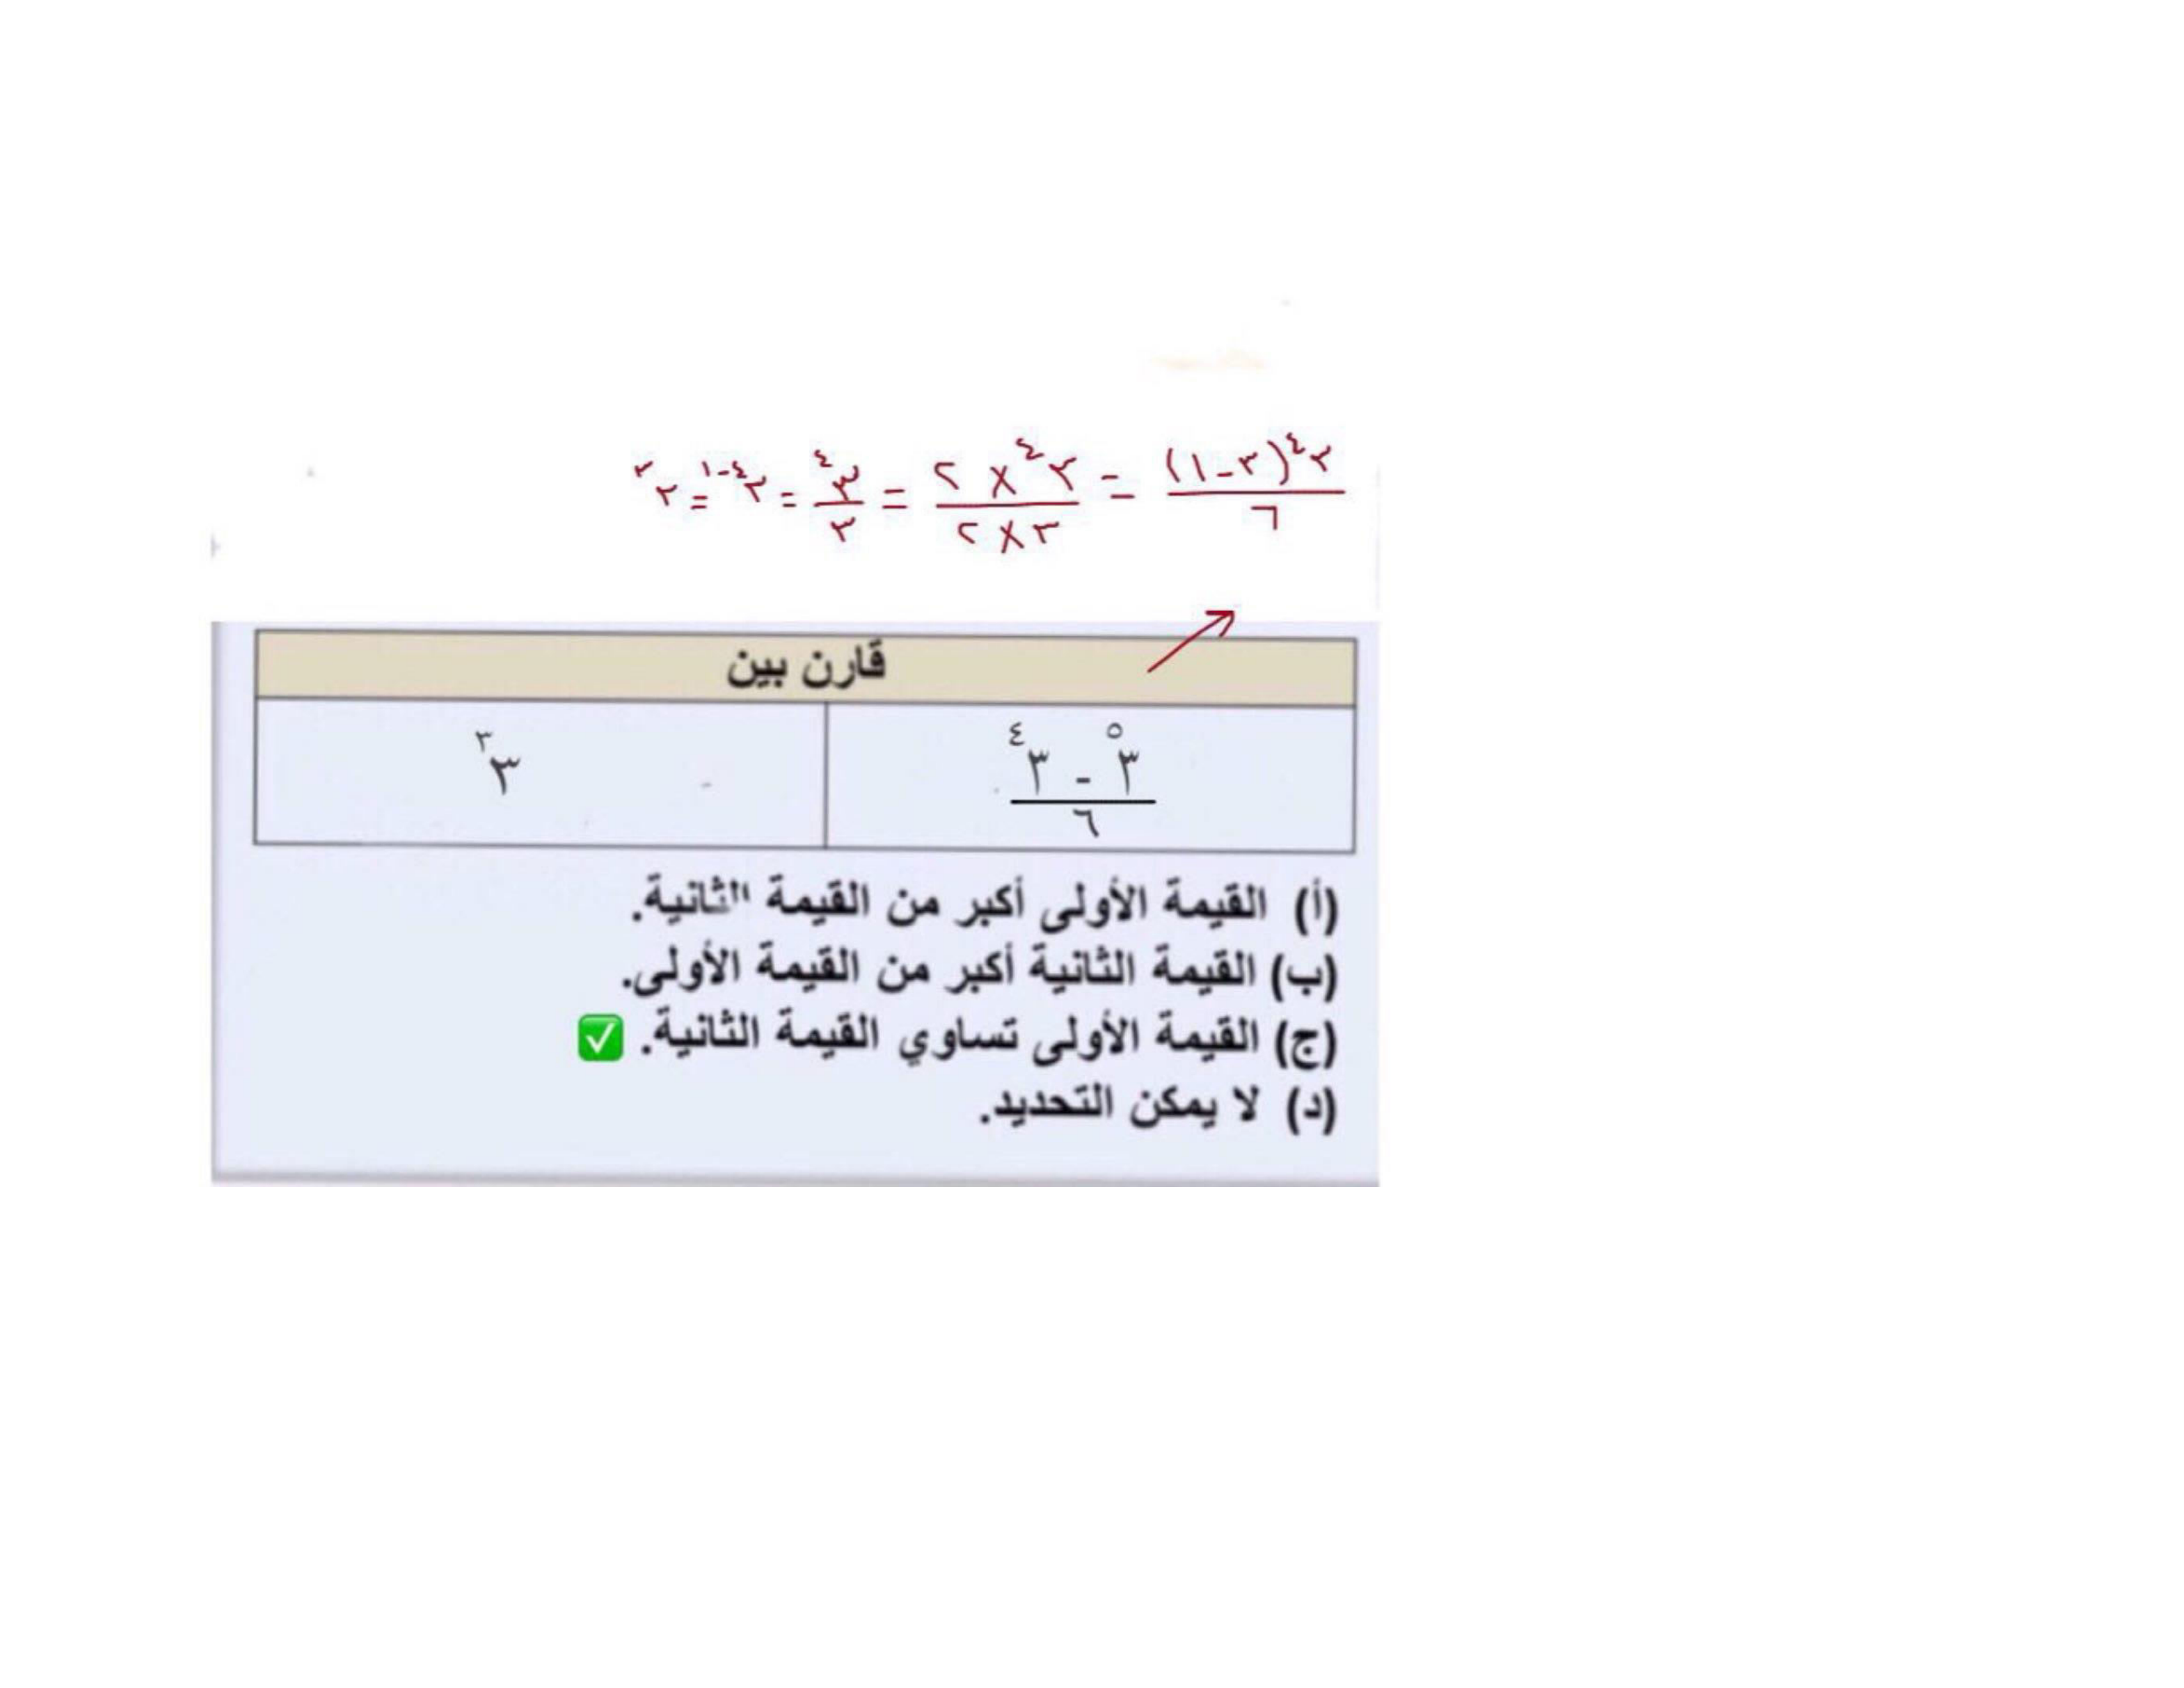 ٣⁴(٣-١)/٦ = ٣⁴×٢/٣×٢ = ٣⁴/٣ = ٣⁴⁻¹ = ٣³
قارن بين
٣⁵ - ٣⁴/٦ ٣³
(أ) القيمة الأولى أكبر من القيمة الثانية.
(ب) القيمة الثانية أكبر من القيمة الأولى.
(ج) القيمة الأولى تساوي القيمة الثانية. ✅
(د) لا يمكن التحديد.